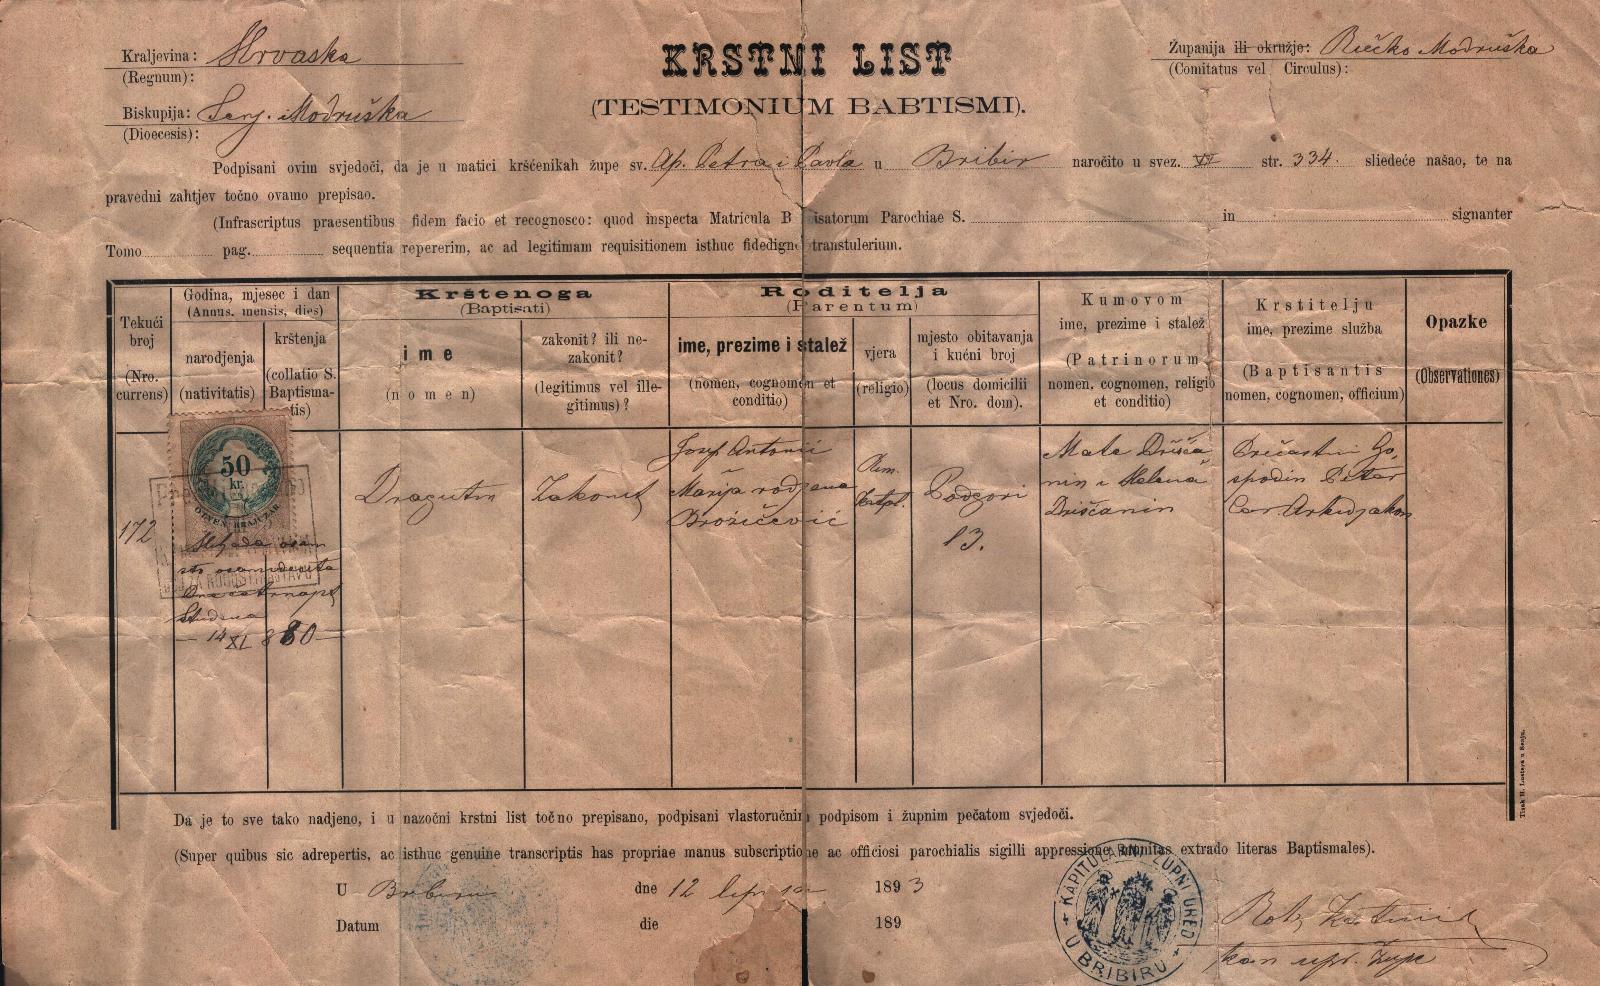 Kraljevina: Hrvaska
(Regnum):
Biskupija: Senj. i Modruška
(Dioecesis):
KRSTNI LIST
(TESTIMONIUM BABTISMI).
Županija ili okružje: Riečko Modruška
(Comitatus vel Circulus):
Podpisani ovim svjedoči, da je u matici kršćenikah župe sv. Ap. Petra i Pavla u Bribir naročito u svez. VI str. 334. sliedeće našao, te na
pravedni zahtjev točno ovamo prepisao.
(Infrascriptus praesentibus fidem facio et recognosco: quod inspecta Matricula B isatorum Parochiae S. in signanter
Tomo pag. sequentia repererim, ac ad legitimam requisitionem isthuc fidedigne transtulerium.
Tekući
broj
(Nro.
currens)
Godina, mjesec i dan
(Annus. mensis, dies)
narodjenja
(nativitatis)
krštenja
(collatio S.
Baptisma-
tis)
Krštenoga
(Baptisati)
ime
(nomen)
zakonit? ili ne-
zakonit?
(legitimus vel ille-
gitimus)?
Roditelja
(Parentum)
ime, prezime i stalež
(nomen, cognomen et
conditio)
vjera
(religio)
mjesto obitavanja
i kućni broj
(locus domicilii
et Nro. dom).
Kumovom
ime, prezime i stalež
(Patrinorum
nomen, cognomen, religio
et conditio)
Krstitelju
ime, prezime služba
(Baptisantis
nomen, cognomen, officium)
Opazke
(Observationes)
172
50
kr.
Hiljada osam
sto osamdeseta
Studena
14 XI 880
Dragutin
Zakonit
Josip Antonić
Marija rodjena
Brozičević
Rim.
katol.
Podgori
13.
Mate Drišča
nin i Helena
Driščanin
Prečastni Go,
spodin Petar
Car Arkidjakon
Da je to sve tako nadjeno, i u nazočni krstni list točno prepisano, podpisani vlastoručnim podpisom i župnim pečatom svjedoči.
(Super quibus sic adrepertis, ac isthuc genuine transcriptis has propriae manus subscriptione ac officiosi parochialis sigilli appressione munitas extrado literas Baptismales).
U Bribiru dne 12 lipnja 1893
Datum die 189
KAPITULARNI ŽUPNI URED
U BRIBIRU
kan upr. župe
Tisak H. Lustera u Senju.